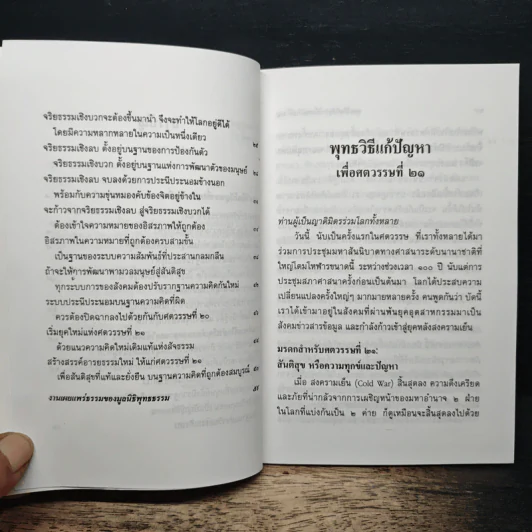 จริยธรรมเชิงบวกจะต้องขึ้นมานำ จึงจะทำให้โลกอยู่ดีได้
โดยมีความหลากหลายในความเป็นหนึ่งเดียว
จริยธรรมเชิงลบ ตั้งอยู่บนฐานของการป้องกันตัว
จริยธรรมเชิงบวก ตั้งอยู่บนฐานแห่งการพัฒนาตัวของมนุษย์
จริยธรรมเชิงลบ จบลงด้วยการประนีประนอมข้างนอก
พร้อมกับความขุ่นหมองคับข้องจิตอยู่ข้างใน
จะก้าวจากจริยธรรมเชิงลบ สู่จริยธรรมเชิงบวกได้
ต้องเข้าใจความหมายของอิสรภาพให้ถูกต้อง
อิสรภาพในความหมายที่ถูกต้องครบสามขั้น
เป็นฐานของระบบความสัมพันธ์ที่ประสานกลมกลืน
ถ้าจะให้การพัฒนาพามวลมนุษย์สู่สันติสุข
ทุกระบบการของสังคมต้องปรับรากฐานความคิดกันใหม่
ระบบประนีประนอมบนฐานความคิดที่ผิด
ควรต้องปิดฉากลงไปด้วยกันกับศตวรรษที่ ๒๐
เริ่มยุคใหม่แห่งศตวรรษที่ ๒๑
ด้วยแนวความคิดใหม่เดิมแท้แห่งสัจธรรม
สร้างสรรค์อารยธรรมใหม่ ให้แก่ศตวรรษที่ ๒๑
เพื่อสันติสุขที่แท้และยั่งยืน บนฐานความคิดที่ถูกต้องสมบูรณ์
งานเผยแพร่ธรรมของมูลนิธิพุทธธรรม
พุทธวิธีแก้ปัญหา
เพื่อศตวรรษที่ ๒๑
ท่านผู้เป็นญาติมิตรร่วมโลกทั้งหลาย
วันนี้ นับเป็นครั้งแรกในศตวรรษ ที่เราทั้งหลายได้มา
ร่วมการประชุมมหาสันนิบาตทางศาสนาระดับนานาชาติที่
ใหญ่โตมโหฬารขนาดนี้ ระหว่างช่วงเวลา ๑๐๐ ปี นับแต่การ
ประชุมสภาศาสนาครั้งก่อนเป็นต้นมา โลกได้ประสบความ
เปลี่ยนแปลงครั้งใหญ่ๆ มากมายหลายครั้ง คนพูดกันว่า บัดนี้
เราได้เข้ามาอยู่ในสังคมที่ผ่านพ้นยุคอุตสาหกรรมมาเป็น
สังคมข่าวสารข้อมูล และกำลังก้าวเข้าสู่ยุคหลังสงครามเย็น
มรดกสำหรับศตวรรษที่ ๒๑:
สันติสุข หรือความทุกข์และปัญหา
เมื่อ สงครามเย็น (Cold War) สิ้นสุดลง ความตึงเครียด
และภัยที่น่ากลัวจากการเผชิญหน้าของมหาอำนาจ ๒ ฝ่าย
ในโลกที่แบ่งกันเป็น ๒ ค่าย ก็ดูเหมือนจะสิ้นสุดลงไปด้วย